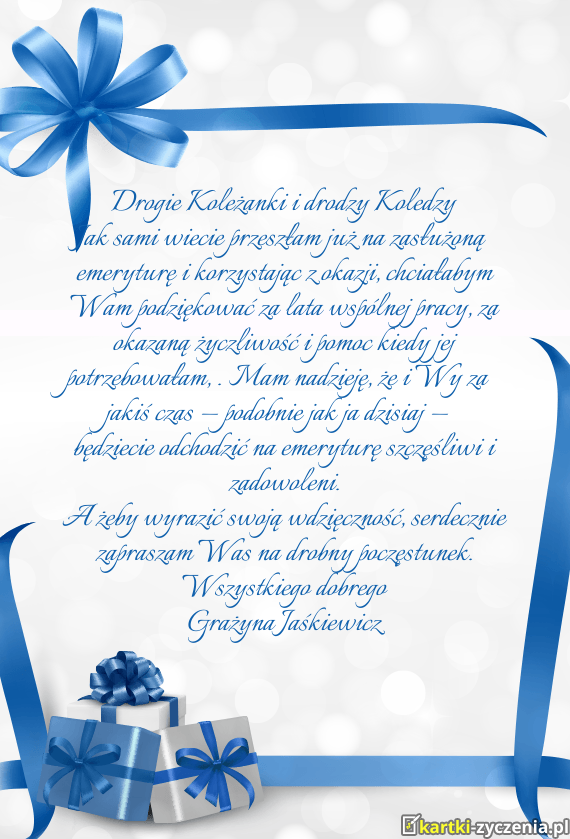 Drogie Koleżanki i drodzy Koledzy
Jak sami wiecie przeszłam już na zasłużoną
emeryturę i korzystając z okazji, chciałabym
Wam podziękować za lata wspólnej pracy, za
okazaną życzliwość i pomoc kiedy jej
potrzebowałam, . Mam nadzieję, że i Wy za
jakiś czas – podobnie jak ja dzisiaj –
będziecie odchodzić na emeryturę szczęśliwi i
zadowoleni.
A żeby wyrazić swoją wdzięczność, serdecznie
zapraszam Was na drobny poczęstunek.
Wszystkiego dobrego
Grażyna Jaśkiewicz
kartki-zyczenia.pl